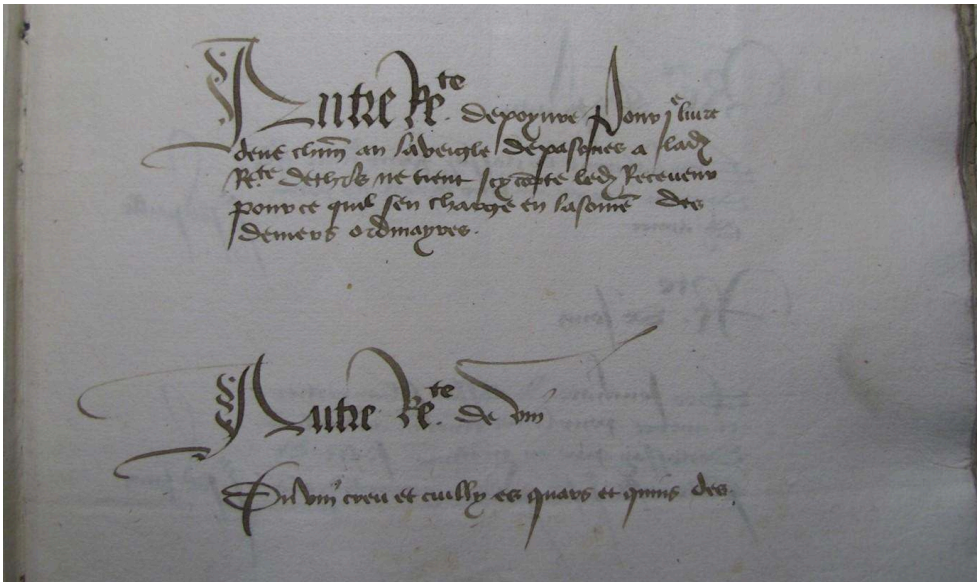 Autre Rete. de poyvre Pour j livre
deue chũn an la veigle de pasques a lad
Rete. de theols ne tient jcy cõpte led Receveur
pour ce quil sen charge en la som̃e des
deniers ordinayres.
Autre Rete. de vin
Du vin creu et cuilly es quars et quins des